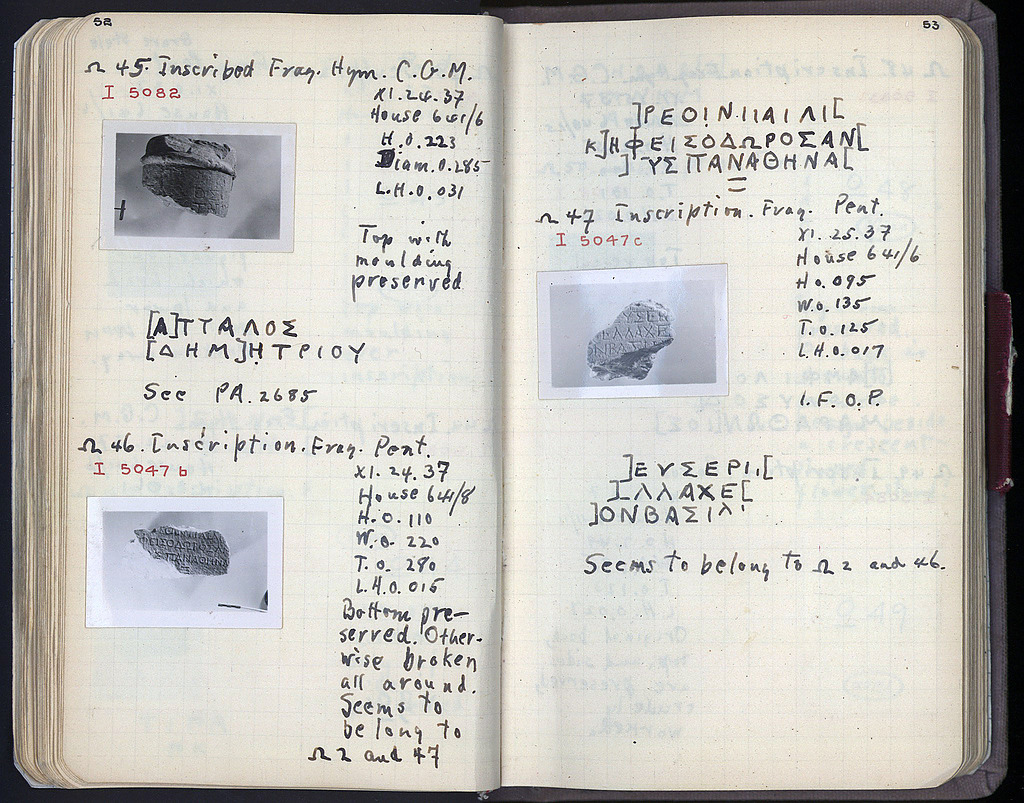 52
Ω 45. Inscribed Frag. Hym. C.G.M.
I 5082
XI.24.37
House 641/6
H.0.223
Diam.0.285
L.H.0.031
Top with
moulding
preserved
[Α]ΤΤΑΛΟΣ
[ΔΗΜ]ΗΤΡΙΟΥ
See PA.2685
Ω 46. Inscription. Frag. Pent.
I 5047 b
XI.24.37
House 641/8
H.0.110
W.0.220
T.0.280
L.H.0.015
Bottom pre-
served. Other-
wise broken
all around.
Seems to
belong to
Ω 2 and 47
53
]ΡΕΟΙΝΙΙΑΙΛΙ[
Κ]ΗΦΕΙΣΟΔΩΡΟΣΑΝ[
]ΥΣΠΑΝΑΘΗΝΑ[
=
Ω 47 Inscription. Frag. Pent.
I 5047c
XI.25.37
House 641/6
H.0.095
W.0.135
T.0.125
L.H.0.017
I.F.O.P.
]ΕΥΣΕΡΙΙ[
]ΙΛΛΑΧΕ[
]ΟΝΒΑΣΙΛΙ
Seems to belong to Ω 2 and 46.